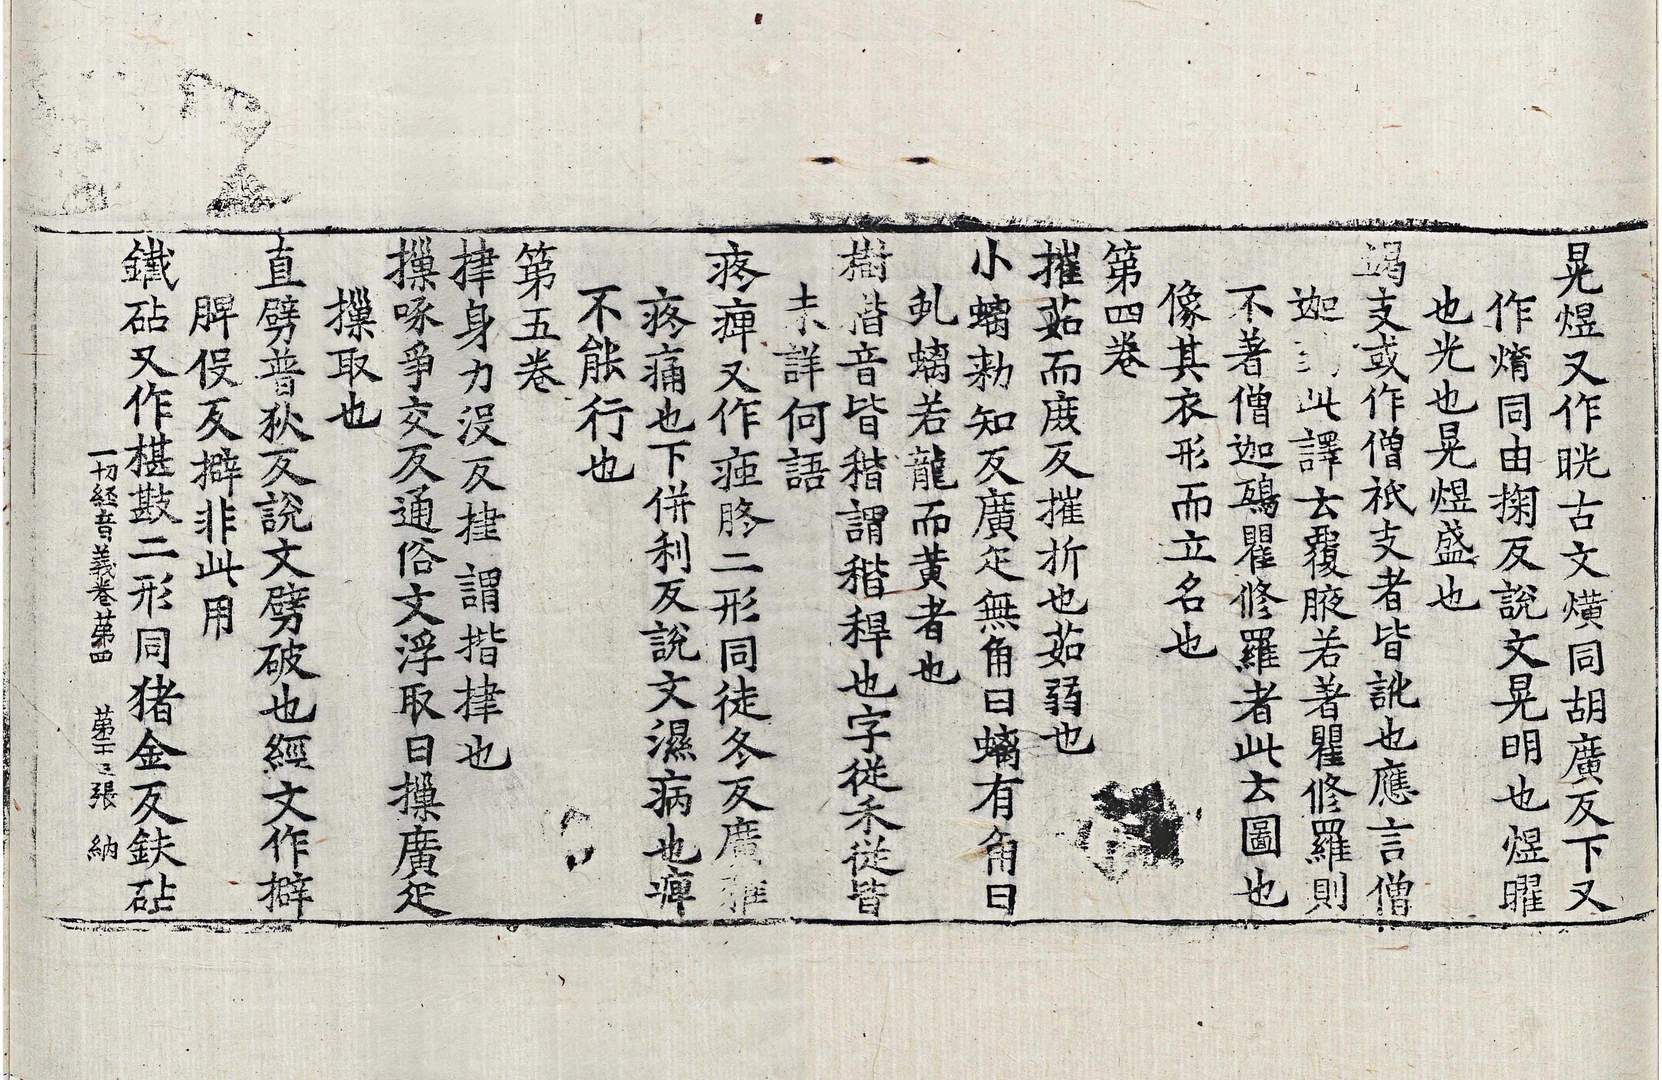 晃煜又作晄古文熿同胡廣反下又
作焴同由掬反說文晃明也煜曜
也光也晃煜盛也
竭支或作僧祇支者皆訛也應言僧
迦此譯云覆腋若著瞿修羅則
不著僧迦鵄瞿修羅者此云圖也
像其衣形而立名也
第四卷
摧茹而庻反摧折也茹弱也
小螭勑知反廣疋無角曰螭有角曰
虬螭若龍而黃者也
樹㨗音皆稭謂稭稈也字從禾從皆
未詳何語
疼痺又作痋䏺二形同徒冬反廣雅
疼痛也下併利反說文濕病也痺
不能行也
第五卷
㨘身力没反㨘謂揩㨘也
摷啄爭交反通俗文浮取曰摷廣疋
摷取也
直劈普狄反說文劈破也經文作擗
脾役反擗非此用
鐵砧又作椹㪛二形同猪金反鈇砧
一切経音義卷苐四 苐二十三張 納